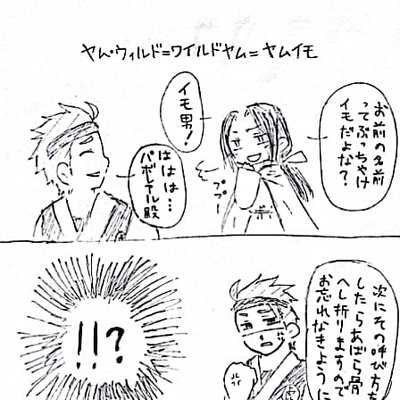 ヤム・ウィルド=ワイルドヤム=ヤムイモ
お前の名前
ってぶっちゃけ
イモだよな?
イモ男!
ププー
ははは…
パボレアル殿
次にその呼び方を
したらあばら骨
へし折りますので
お忘れなきように
!!?